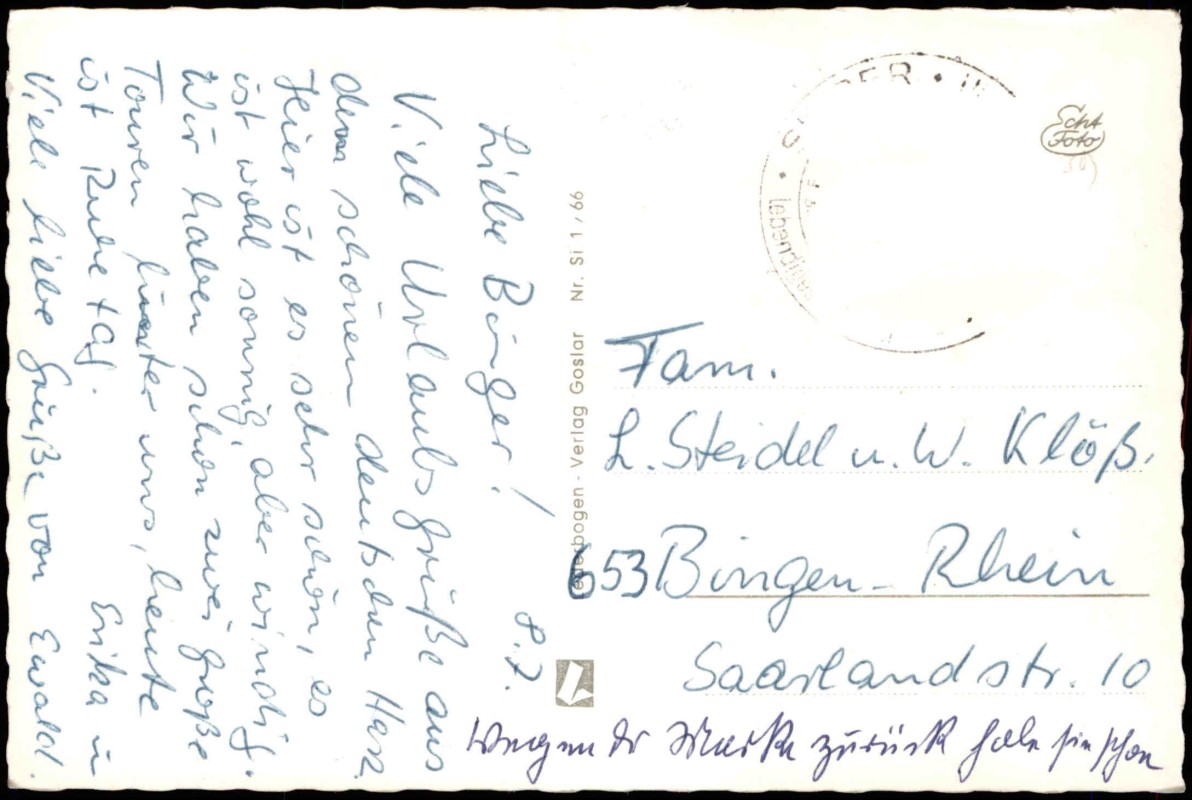 8.7.
Liebe Binger!
Viele Urlaubsgrüße aus
dem schönen deutschen Harz.
Hier ist es sehr schön, es
ist wohl sonnig, aber windig.
Wir haben schon zwei große
Touren hinter uns, heute
ist Ruhetag. Erika u
Viele liebe Grüße von Ewald.
Verlag Goslar Nr. Si 1/66
Echt
Foto
Fam.
L. Steidel u. W. Klöß.
653 Bingen-Rhein
Saarlandstr. 10
Wegen der Marke zurück habe sie schon